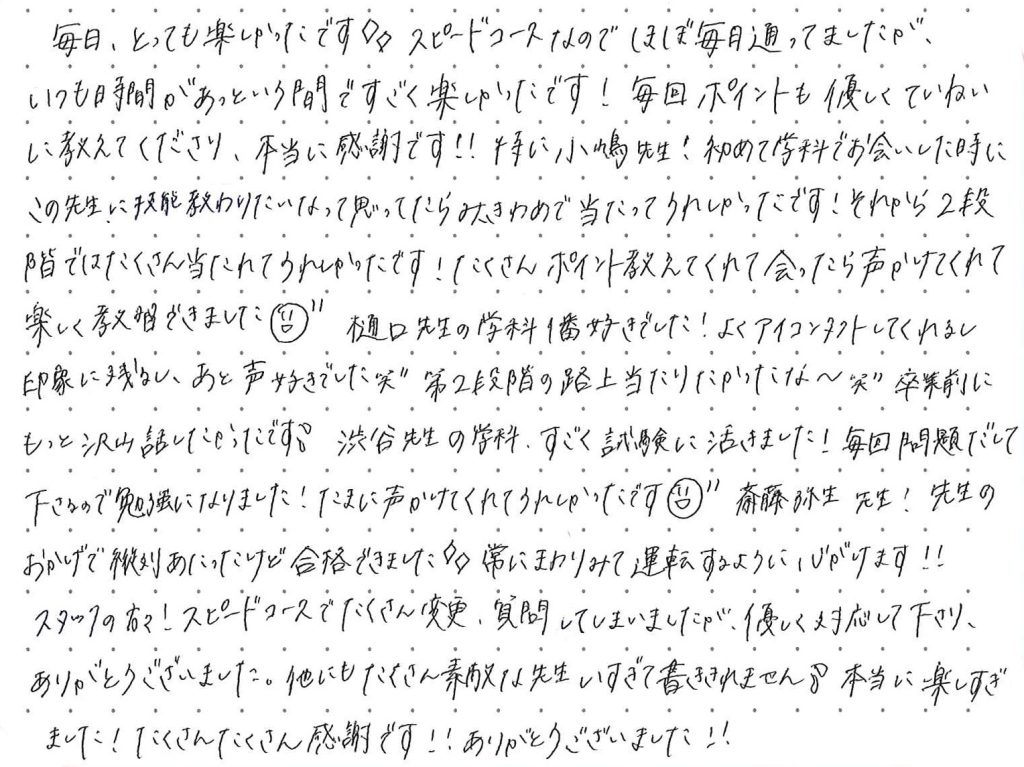 毎日、とっても楽しかったです◊◊ スピードコースなのでほぼ毎日通ってましたが、
いつも時間があっという間ですごく楽しかったです！ 毎回ポイントも優しくていねい
に教えてくださり、本当に感謝です!! 特に小嶋先生！初めて学科でお会いした時に
この先生に技能教わりたいなって思ってたらみきわめで当たってうれしかったです！それから2段
階ではたくさん当たれてうれしかったです！たくさんポイント教えてくれて会ったら声かけてくれて
楽しく教習できました 樋口先生の学科1番好きでした！よくアイコンタクトしてくれるし
印象に残るし、あと声好きでした笑" 第2段階の路上当たりたかったな〜笑" 卒業前に
もっと沢山話したかったです 渋谷先生の学科、すごく試験に活きました！毎回問題だして
下さるので勉強になりました！たまに声かけてくれてうれしかったです 斎藤弥生先生！先生の
おかげで縦列あたったけど合格できました◊◊ 常にまわりみて運転するように心がけます!!
スタッフの方々！スピードコースでたくさん変更、質問してしまいましたが、優しく対応して下さり、
ありがとうございました。他にもたくさん素敵な先生いすぎて書ききれません 本当に楽しすぎ
ました！たくさんたくさん感謝です!! ありがとうございました!!